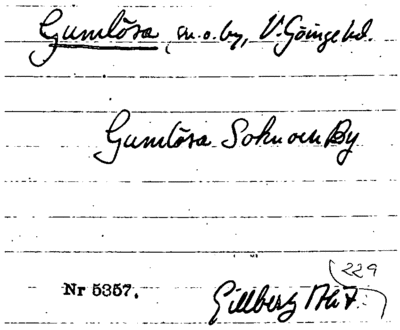 Gumlösa, sn. o. by, V. Göinge hd.
Gumlösa Sokn och By
229
Nr 5357.
Gillberg